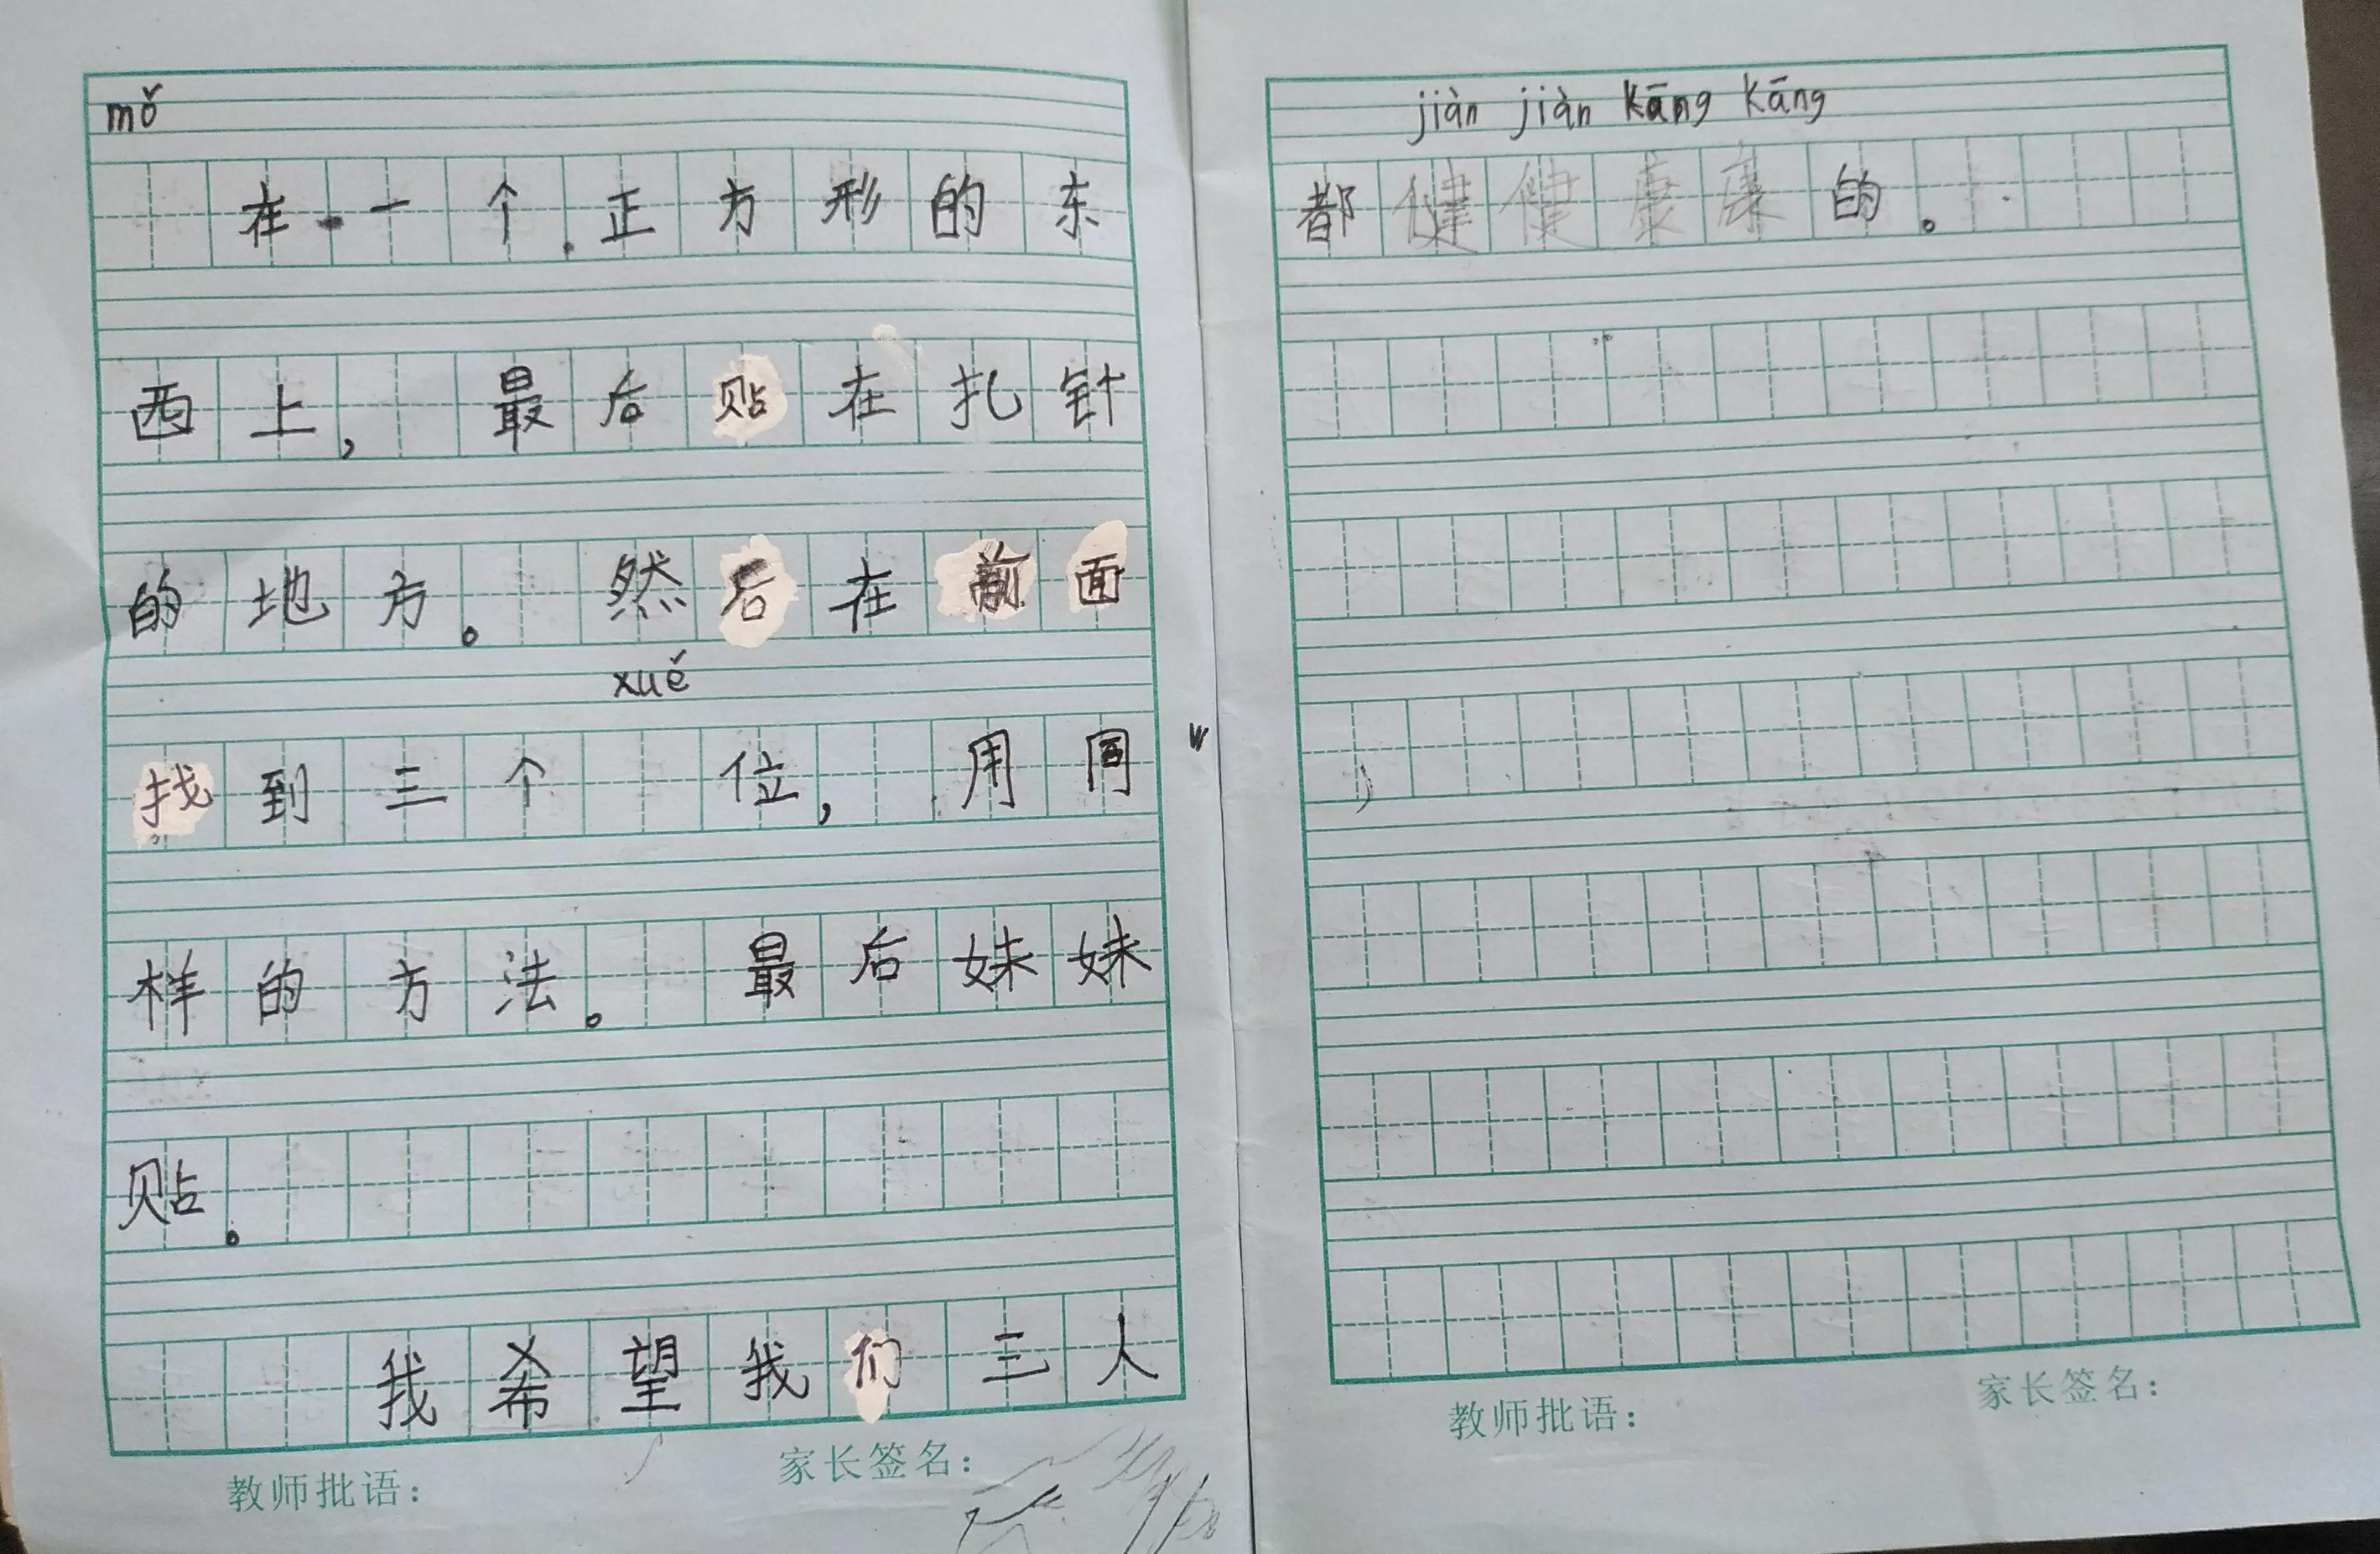 mǒ
在一个正方形的东
西上，最后贴在扎针
的地方。然后在前面
xuě
找到三个 位，用同
样的方法。最后妹妹
贴。
我希望我们三人
教师批语： 家长签名：
jiàn jiàn kāng kāng
都健健康康的。
教师批语： 家长签名：